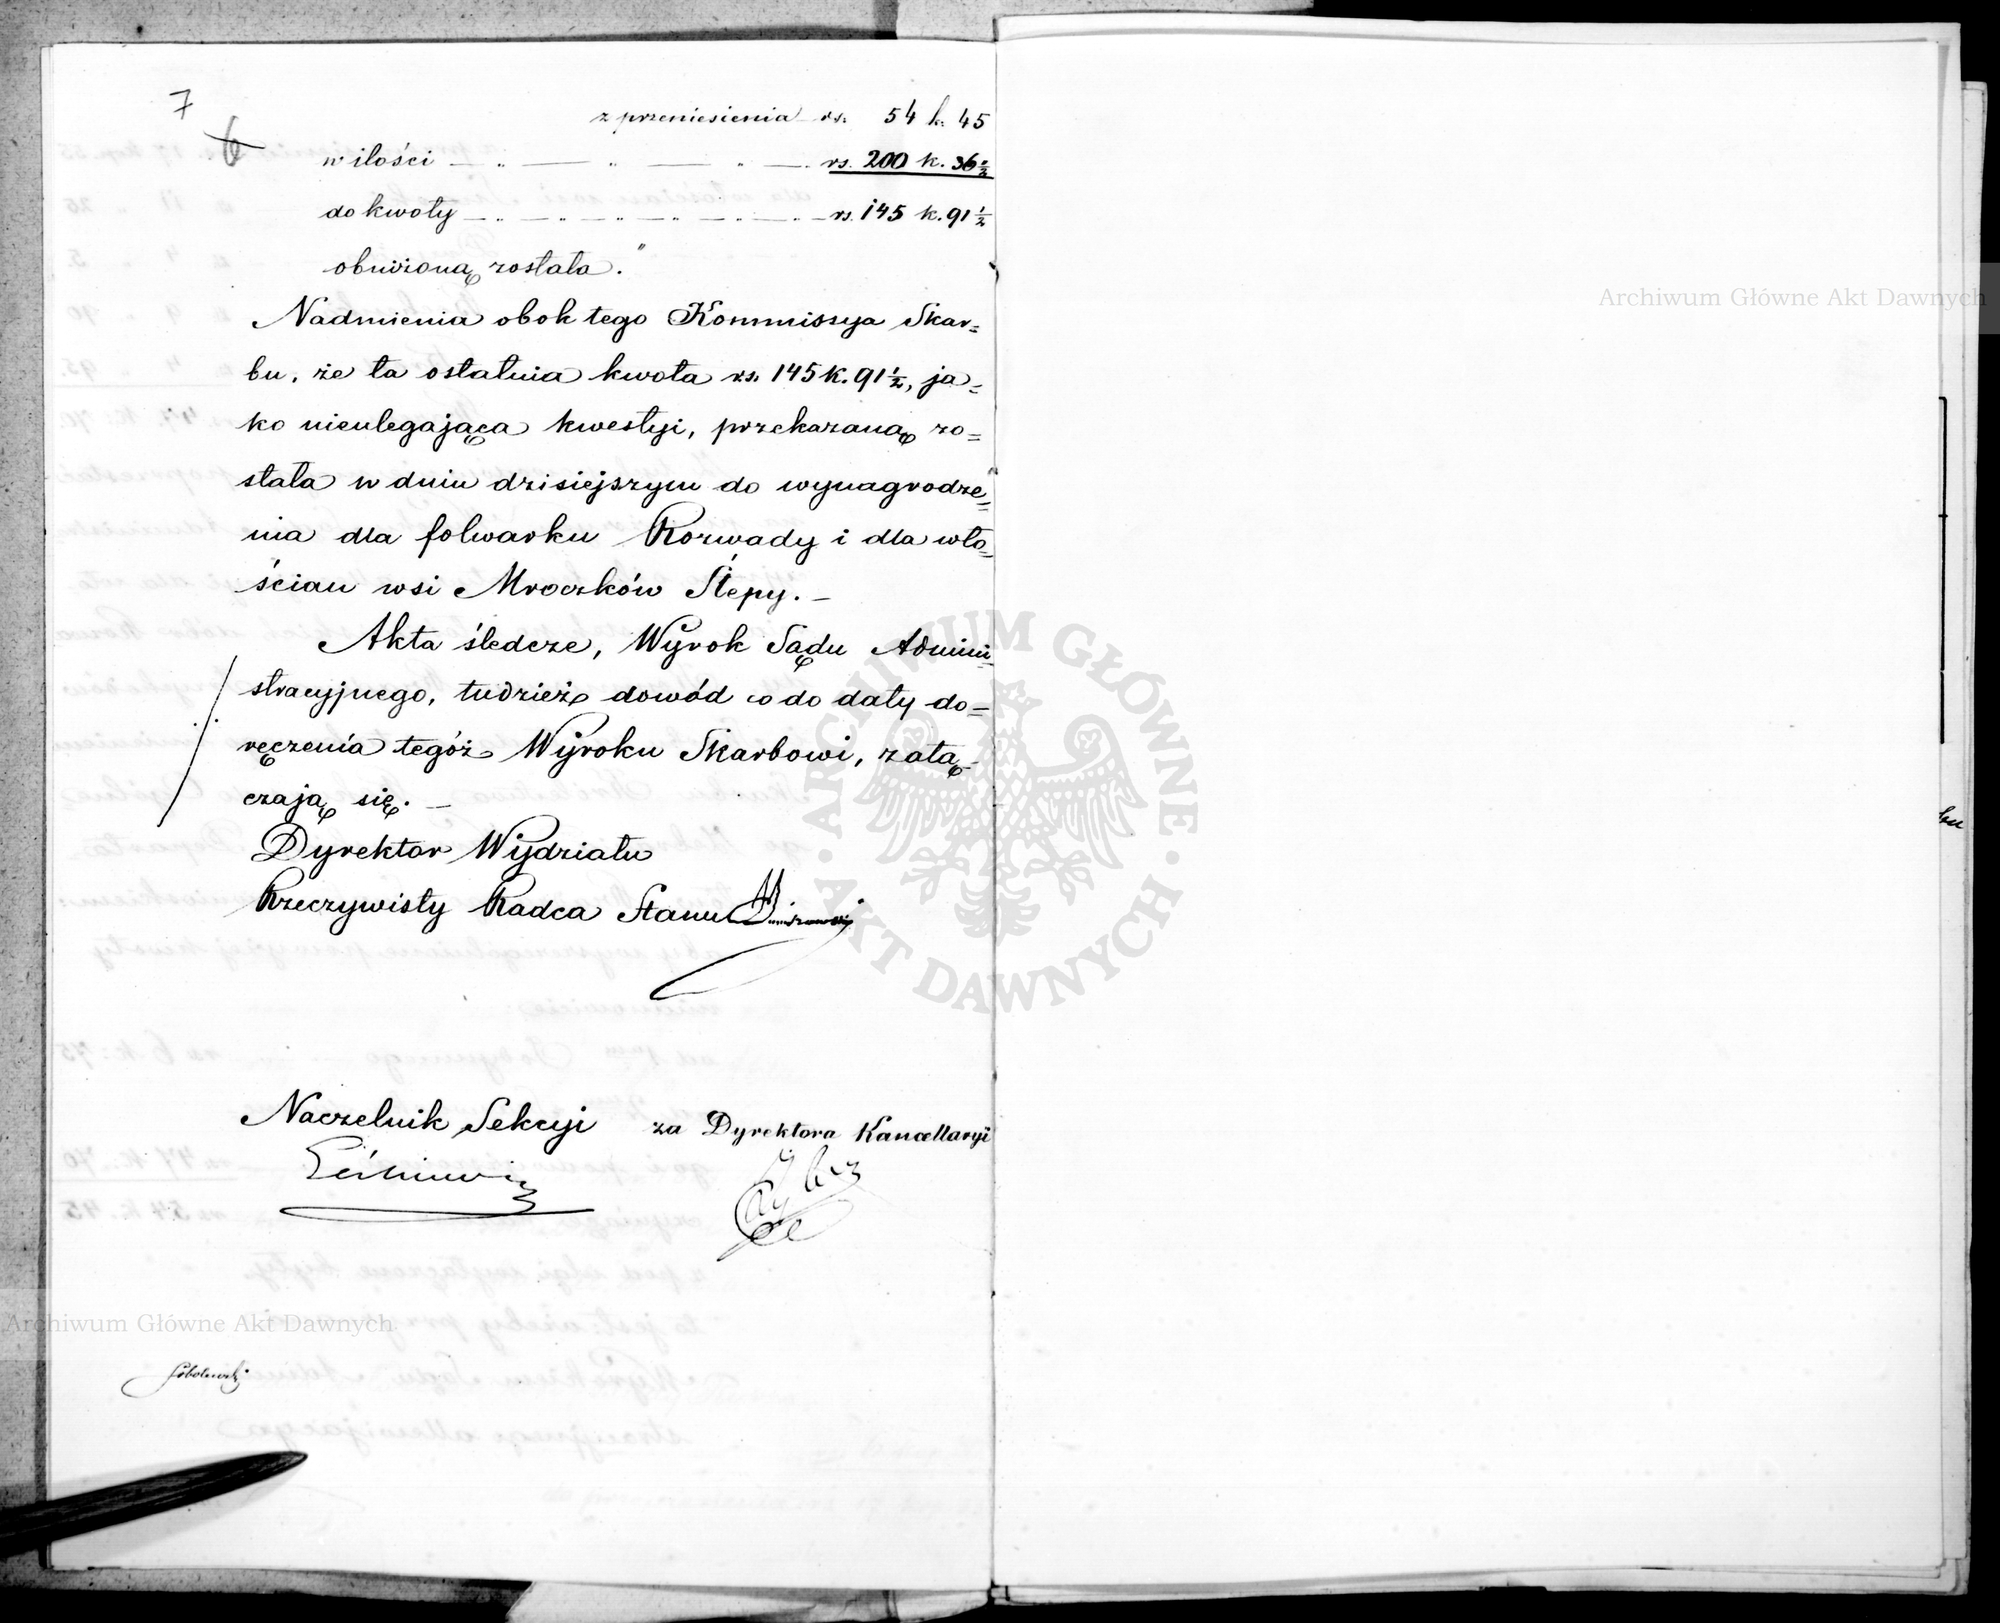 7
6
z przeniesienia rs. 54 k. 45
w ilości — „ — „ — „ — rs. 200 k. 36½
do kwoty — „ — „ — „ — „ — „ — rs. 145 k. 91½
obniżoną została."
Nadmienia obok tego Kommissya Skar=
bu, że ta ostatnia kwota rs. 145 k. 91½, ja=
ko nieulegająca kwestyi, przekazaną zo=
stała w dniu dzisiejszym do wynagrodze=
nia dla folwarku Rozwady i dla wło=
ścian wsi Mroczków Ślepy. —
Akta śledcze, Wyrok Sądu Admini=
stracyjnego, tudzież dowód co do daty do=
ręczenia tegóż Wyroku Skarbowi, załą=
czają się. —
Dyrektor Wydziału
Rzeczywisty Radca Stanu
Naczelnik Sekcyi za Dyrektora Kancellaryi
Sobolewski
Archiwum Główne Akt Dawnych
Archiwum Główne Akt Dawnych
ARCHIWUM GŁÓWNE · AKT DAWNYCH ·